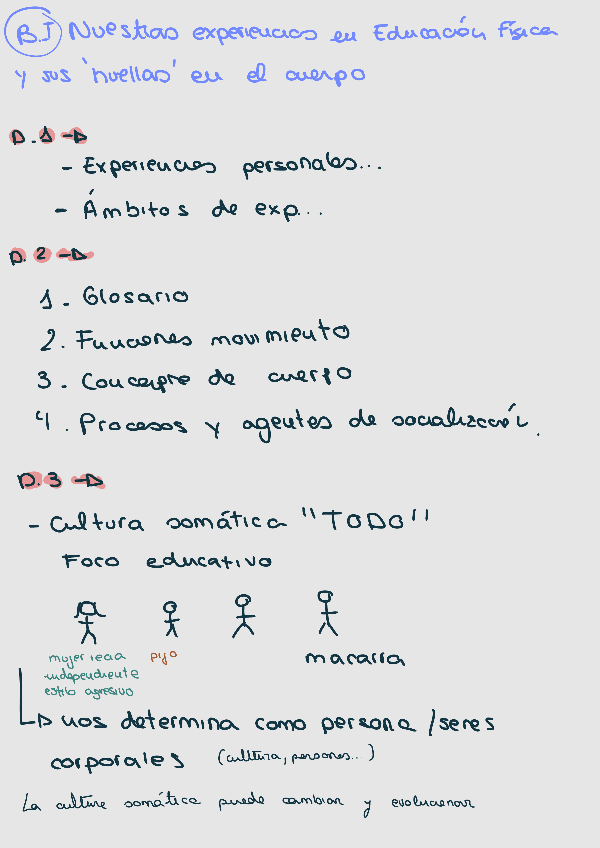 B.I Nuestras experiencias en Educación Física
y sus 'huellas' en el cuerpo
D.1 →
- Experiencias personales...
- Ámbitos de exp...
D.2 →
1. Glosario
2. Funciones movimiento
3. Concepto de cuerpo
4. Procesos y agentes de socialización.
D.3 →
- Cultura somática "TODO"
Foco educativo
mujer recia pijo macarra
independiente
estilo agresivo
↳ nos determina como persona/seres
corporales (cultura, personas...)
La cultura somática puede cambiar y evolucionar